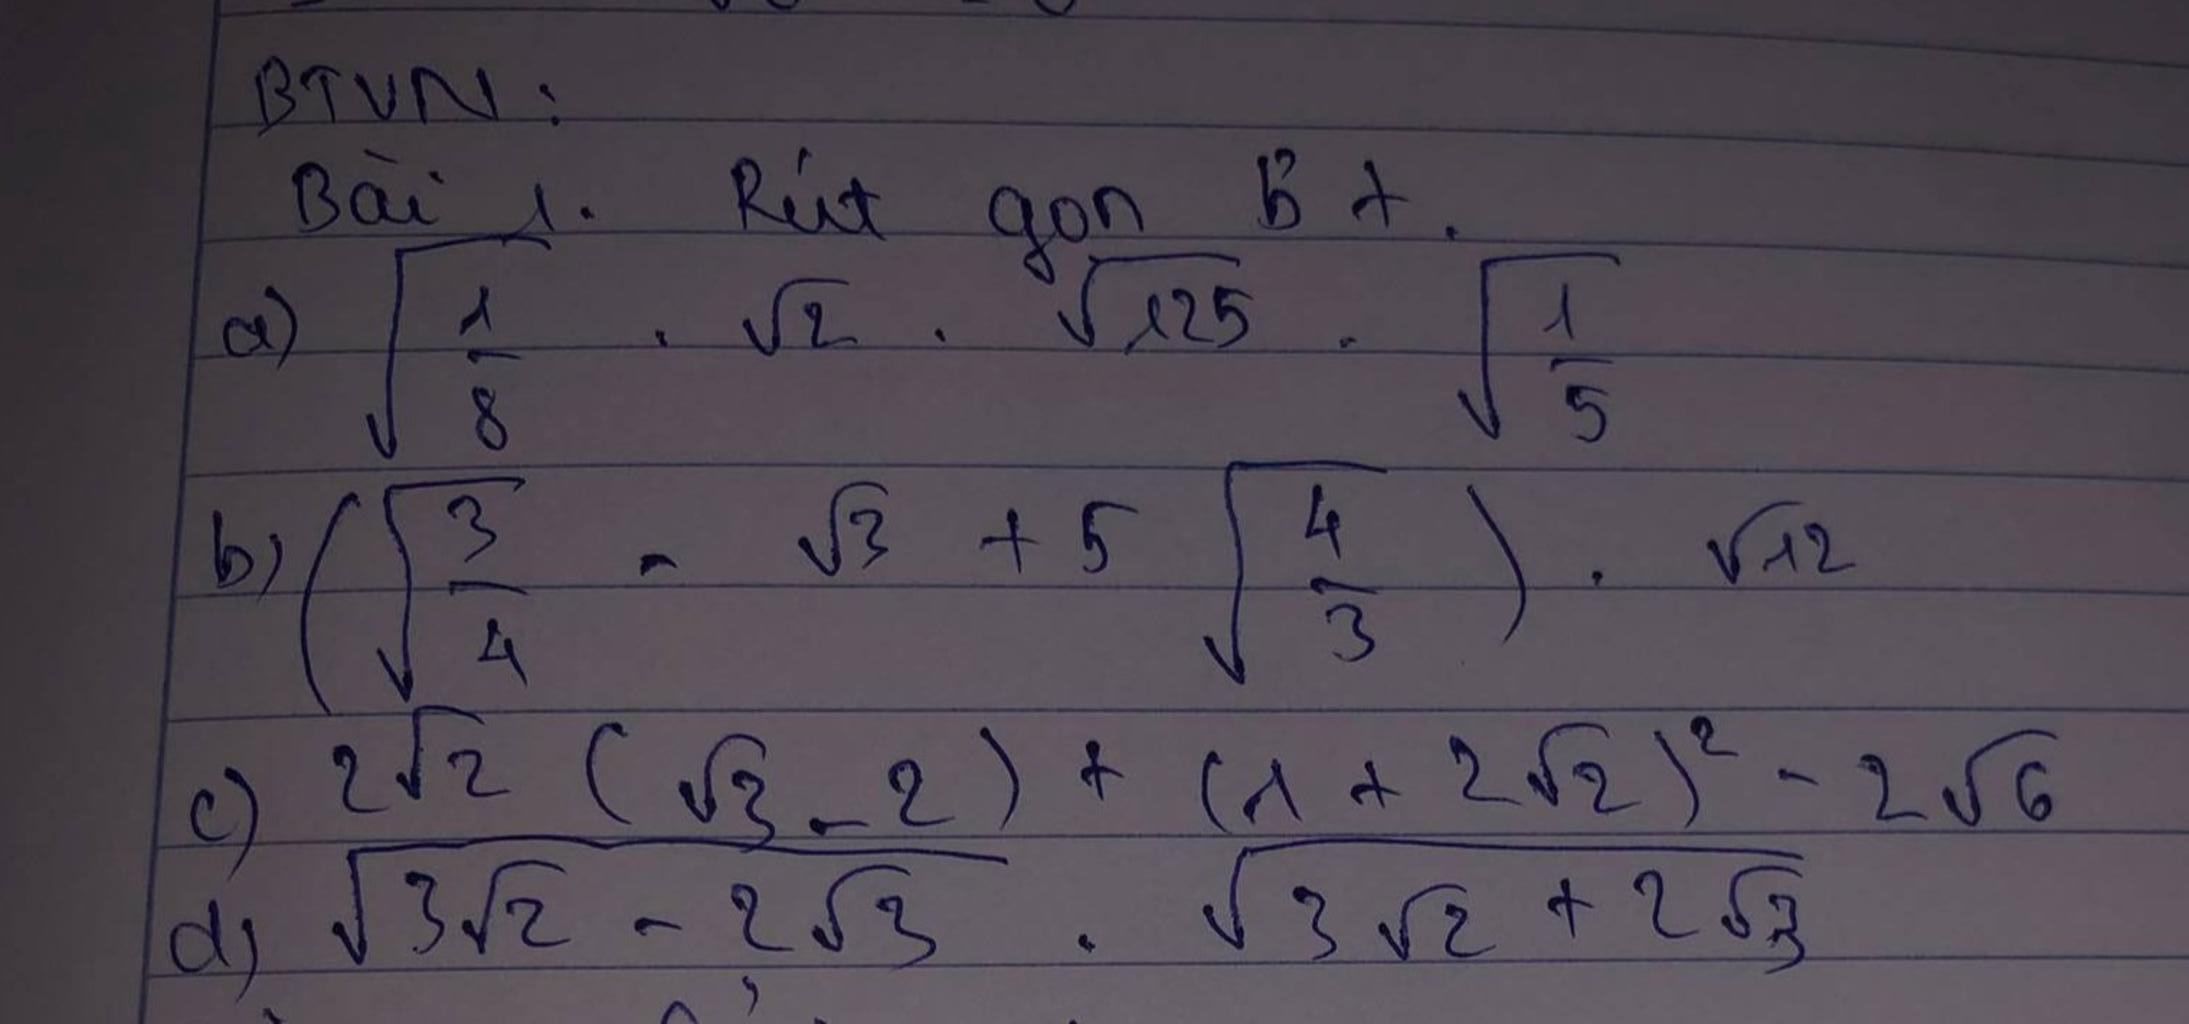 BTVN:
Bài 1. Rút gọn B̉ t.
a) √(1/8) . √2 . √125 . √(1/5)
b) (√(3/4) - √3 + 5√(4/3)) . √12
c) 2√2 (√3 - 2) + (1 + 2√2)² - 2√6
d) √(3√2 - 2√3) . √(3√2 + 2√3)